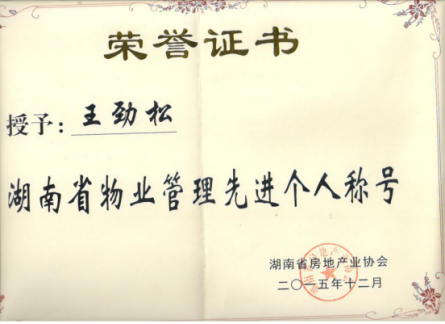 荣誉证书
授予：王劲松
湖南省物业管理先进个人称号
湖南省房地产业协会
二〇一五年十二月